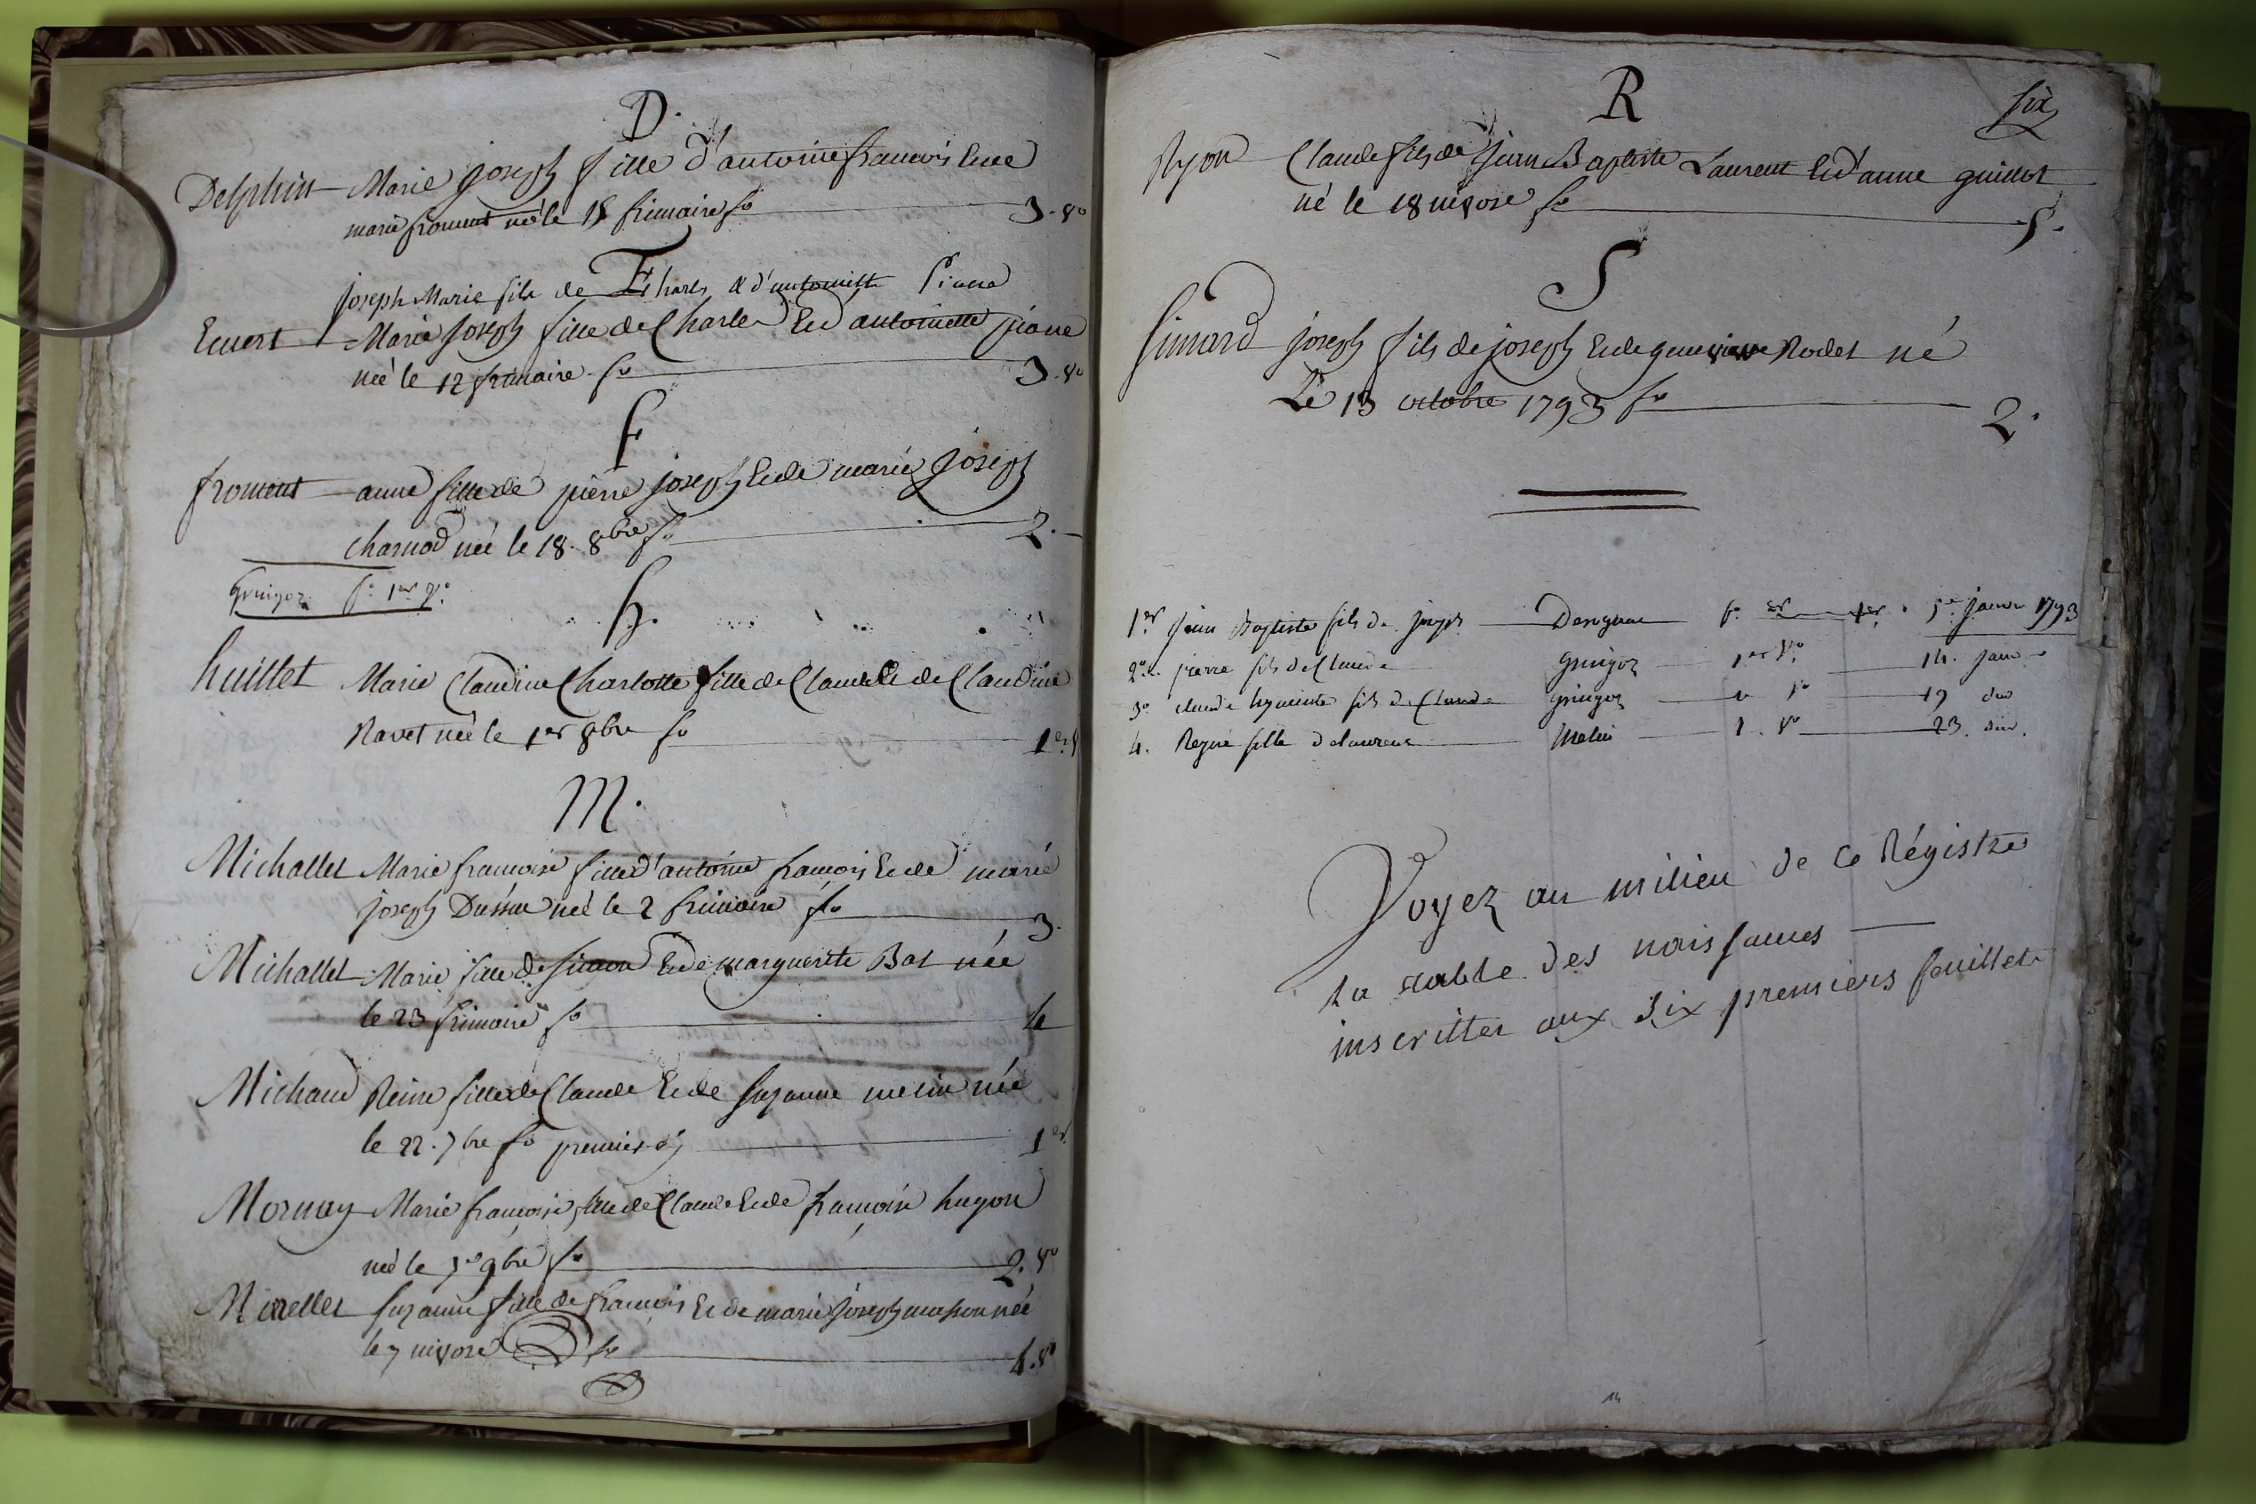 D.
Delphin Marie joseph fille d'antoine francois Et de
marie froment née le 15 frimaire fo 3. vo
E
joseph Marie fils de Charles & d'antoinette Piana
Emert Marie Joseph fille de Charles Et d'antoinette piane
née le 12 frimaire fo 3. vo
f
froment anne fille de pierre joseph Et de marie Joseph
charnod née le 18. 8bre fo 2.
Gringoz fo 1er vo
h.
huillet Marie Claudine Charlotte fille de Claude Et de Claudine
Ravet née le 1er 8bre fo 1er. v
M.
Michallet Marie francoise fille d'antoine francois Et de marie
joseph née le 2 frimaire fo 3.
Michallet Marie fille de simon Et de marguerite Bat née
le 23 frimaire fo 4
Michaud Reine fille de Claude Et de suzanne melin née
le 22. 7bre fo premier 1er
Mornay Marie françoise fille de Claude Et de françoise hugon
née le 9bre fo 2. vo
suzanne fille de francois Et de marie joseph née
le 7 nivose fo 4. vo
R
six
Ryon Claude fils de Jean Baptiste Laurent Et d'anne guillot
né le 18 nivose fo 5.
S
simard joseph fils de joseph Et de genevieve Rodet né
Le 13 octobre 1793 fo 2.
1er Jean Baptiste fils de joseph fo 1er. janvier 1793
2o. pierre fils de Claude Gringoz 1er vo 14. janv
3o claude hyacinte fils de Claude gringoz 1. vo 19 dud
4. Reyne fille de laurent Melin 1. vo 23. dud.
Voyez au milieu de ce Régistre
La table des naissances
inscrittes aux six premiers feuillets
14